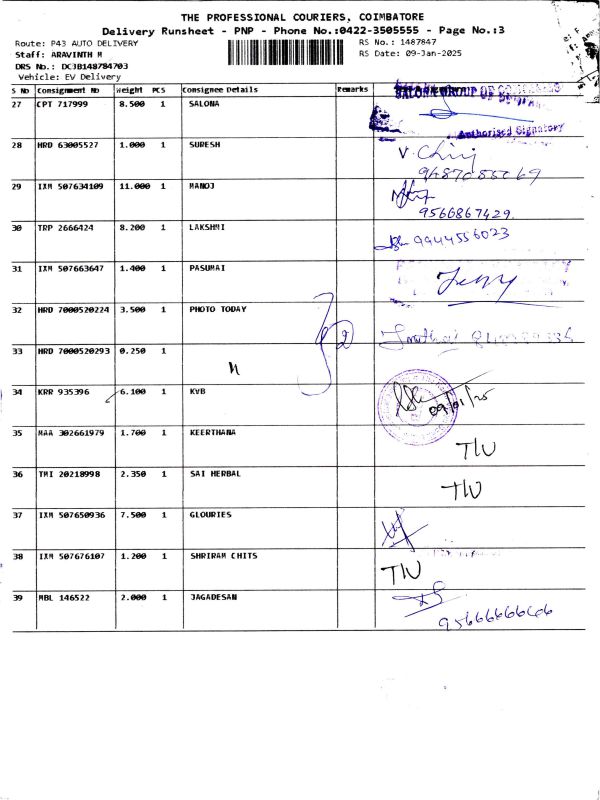 THE PROFESSIONAL COURIERS, COIMBATORE
Delivery Runsheet - PNP - Phone No.:0422-3505555 - Page No.:3
Route: P43 AUTO DELIVERY RS No.: 1487847
Staff: ARAVINTH M RS Date: 09-Jan-2025
DRS No.: DC3B148784703
Vehicle: EV Delivery
S No Consignment No Weight PCS Consignee Details Remarks
27 CPT 717999 8.500 1 SALONA
Authorised Signatory
28 HRD 63005527 1.000 1 SURESH
29 IXM 507634109 11.000 1 MANOJ
9566867429
30 TRP 2666424 8.200 1 LAKSHMI 9944556023
31 IXM 507663647 1.400 1 PASUMAI
32 HRD 7000520224 3.500 1 PHOTO TODAY
2
33 HRD 7000520293 0.250 1 "
34 KRR 935396 6.100 1 KVB 09/01/25
35 MAA 302661979 1.700 1 KEERTHANA TIU
36 TMI 20218998 2.350 1 SAI HERBAL TIU
37 IXM 507650936 7.500 1 GLOURIES
38 IXM 507676107 1.200 1 SHRIRAM CHITS TIU
39 MBL 146522 2.000 1 JAGADESAN